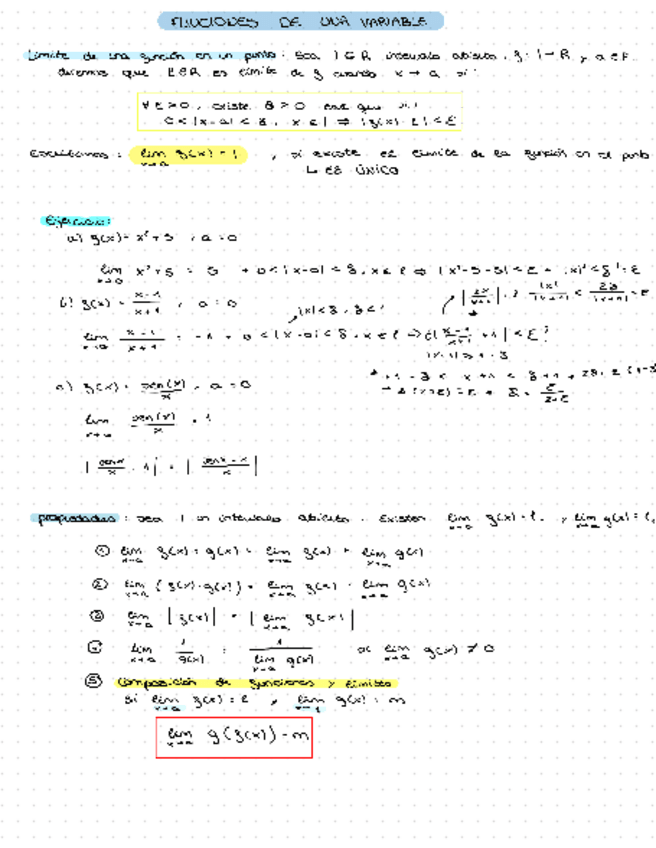 FUNCIONES DE UNA VARIABLE
Límite de una función en un punto: Sea I ⊆ R intervalo abierto, f: I → R y a ∈ I.
diremos que l ∈ R es límite de f cuando x → a si:
∀ε > 0, existe δ > 0 tal que si
0 < |x-a| < δ, x ∈ I ⇒ |f(x)-l| < ε
Escribimos: lim x→a f(x) = l, si existe el límite de la función en el punto
↳ es único
Ejercicio:
a) f(x) = x² + 5, a = 0
lim x→0 x² + 5 = 5 → 0 < |x-0| < δ, x ∈ I ⇒ |x²+5-5| < ε
b) f(x) = (x-1)/(x+1), a = 0
|x| < δ, δ < 1
lim x→0 (x-1)/(x+1) = -1 → 0 < |x-0| < δ, x ∈ I ⇒ |(x-1)/(x+1) + 1| < ε?
c) f(x) = sen(x)/x, a = 0
lim x→0 sen(x)/x = 1
|senx/x - 1| = |(senx - x)/x|
propiedades: sea I un intervalo abierto. Existen lim x→a f(x) = l, y lim x→a g(x) = l
① lim x→a f(x) + g(x) = lim x→a f(x) + lim x→a g(x)
② lim x→a (f(x)·g(x)) = lim x→a f(x) · lim x→a g(x)
③ lim x→a |f(x)| = |lim x→a f(x)|
④ lim x→a 1/g(x) = 1/(lim x→a g(x)) si lim x→a g(x) ≠ 0
⑤ Composición de funciones y límites
si lim x→a f(x) = l y lim x→l g(x) = m
lim x→a g(f(x)) = m